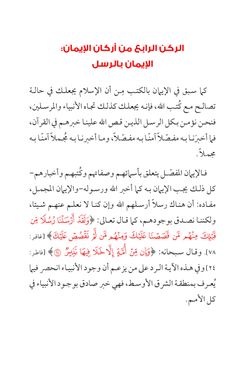 الركن الرابع من أركان الإيمان:
الإيمان بالرسل
كما سبق في الإيمان بالكتب مِن أن الإسلام يجعلك في حالة
تصالح مع كُتب الله، فإنه يجعلك كذلك تجاه الأنبياء والمرسلين،
فنحن نؤمن بكل الرسل الذين قص الله علينا خبرهم في القرآن،
فما أُخبرْنا به مفصَّلاً آمنَّا به مفصَّلاً، وما أُخبرنا به مُجملاً آمنَّا به
مجملاً.
فالإيمان المفصَّل يتعلق بأسمائهم وصفاتهم وكُتبهم وأخبارهم-
كل ذلك يجب الإيمان به كما أخبر الله ورسوله-والإيمان المجمل،
مفاده: أن هناك رسلاً أرسلهم الله وإن كنا لا نعلم عنهم شيئا،
ولكننا نصدق بوجودهم، كما قال تعالى: ﴿وَلَقَدْ أَرْسَلْنَا رُسُلًا مِّن
قَبْلِكَ مِنْهُم مَّن قَصَصْنَا عَلَيْكَ وَمِنْهُم مَّن لَّمْ نَقْصُصْ عَلَيْكَ﴾ [غافر:
٧٨]. وقال سبحانه: ﴿وَإِن مِّنْ أُمَّةٍ إِلَّا خَلَا فِيهَا نَذِيرٌ﴾ [فاطر:
٢٤] وفي هذه الآية الرد على من يزعم أن وجود الأنبياء انحصر فيما
يُعرف بمنطقة الشرق الأوسط، فهي خبر صادق بوجود الأنبياء في
كل الأمم.